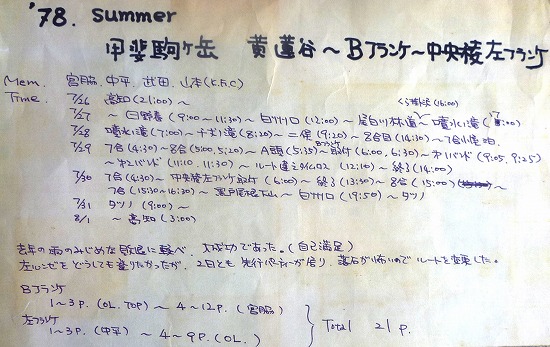 '78. summer
甲斐駒ヶ岳 黄蓮谷~Bフランケ~中央稜左フランケ
Mem. 宮脇、中平、武田、山本(K.F.C)
Time.
7/26 高知(21:00)~
くら掛沢(16:00)
7/27 ~日野春(9:00~11:30)~白須口(12:00)~尾白川林道~噴水滝
7/28 噴水滝(7:00)~千丈滝(8:20)~二俣(9:20)~8合目(14:30)~7合小屋泊
7/29 7合(4:30)~8合(5:00, 5:20)~A頭(5:35)~Bフランケ取付(6:00, 6:30)~オ1バンド(9:05, 9:25)
~オ2バンド(11:10, 11:30)~ルート違えタイムロス(12:10)~終了(14:00)
7/30 7合(4:30)~中央稜左フランケ取付(6:00)~終了(13:30)~8合(15:00)
7合(15:30~16:30)~黒戸尾根下山~白須口(19:50)~タツノ
7/31 タツノ(9:00)~
8/1 ~高知(3:00)
去年の雨のみじめな敗退に較べ、大成功であった。(自己満足)
左ルンゼをどうしても登りたかったが、2日とも先行パーティーが居り、落石が怖いのでルートを変更した。
Bフランケ
1~3P.(OL.TOP)~4~12P.(宮脇)
左フランケ
1~3P.(中平)~4~9P.(OL.)
Total 21P.